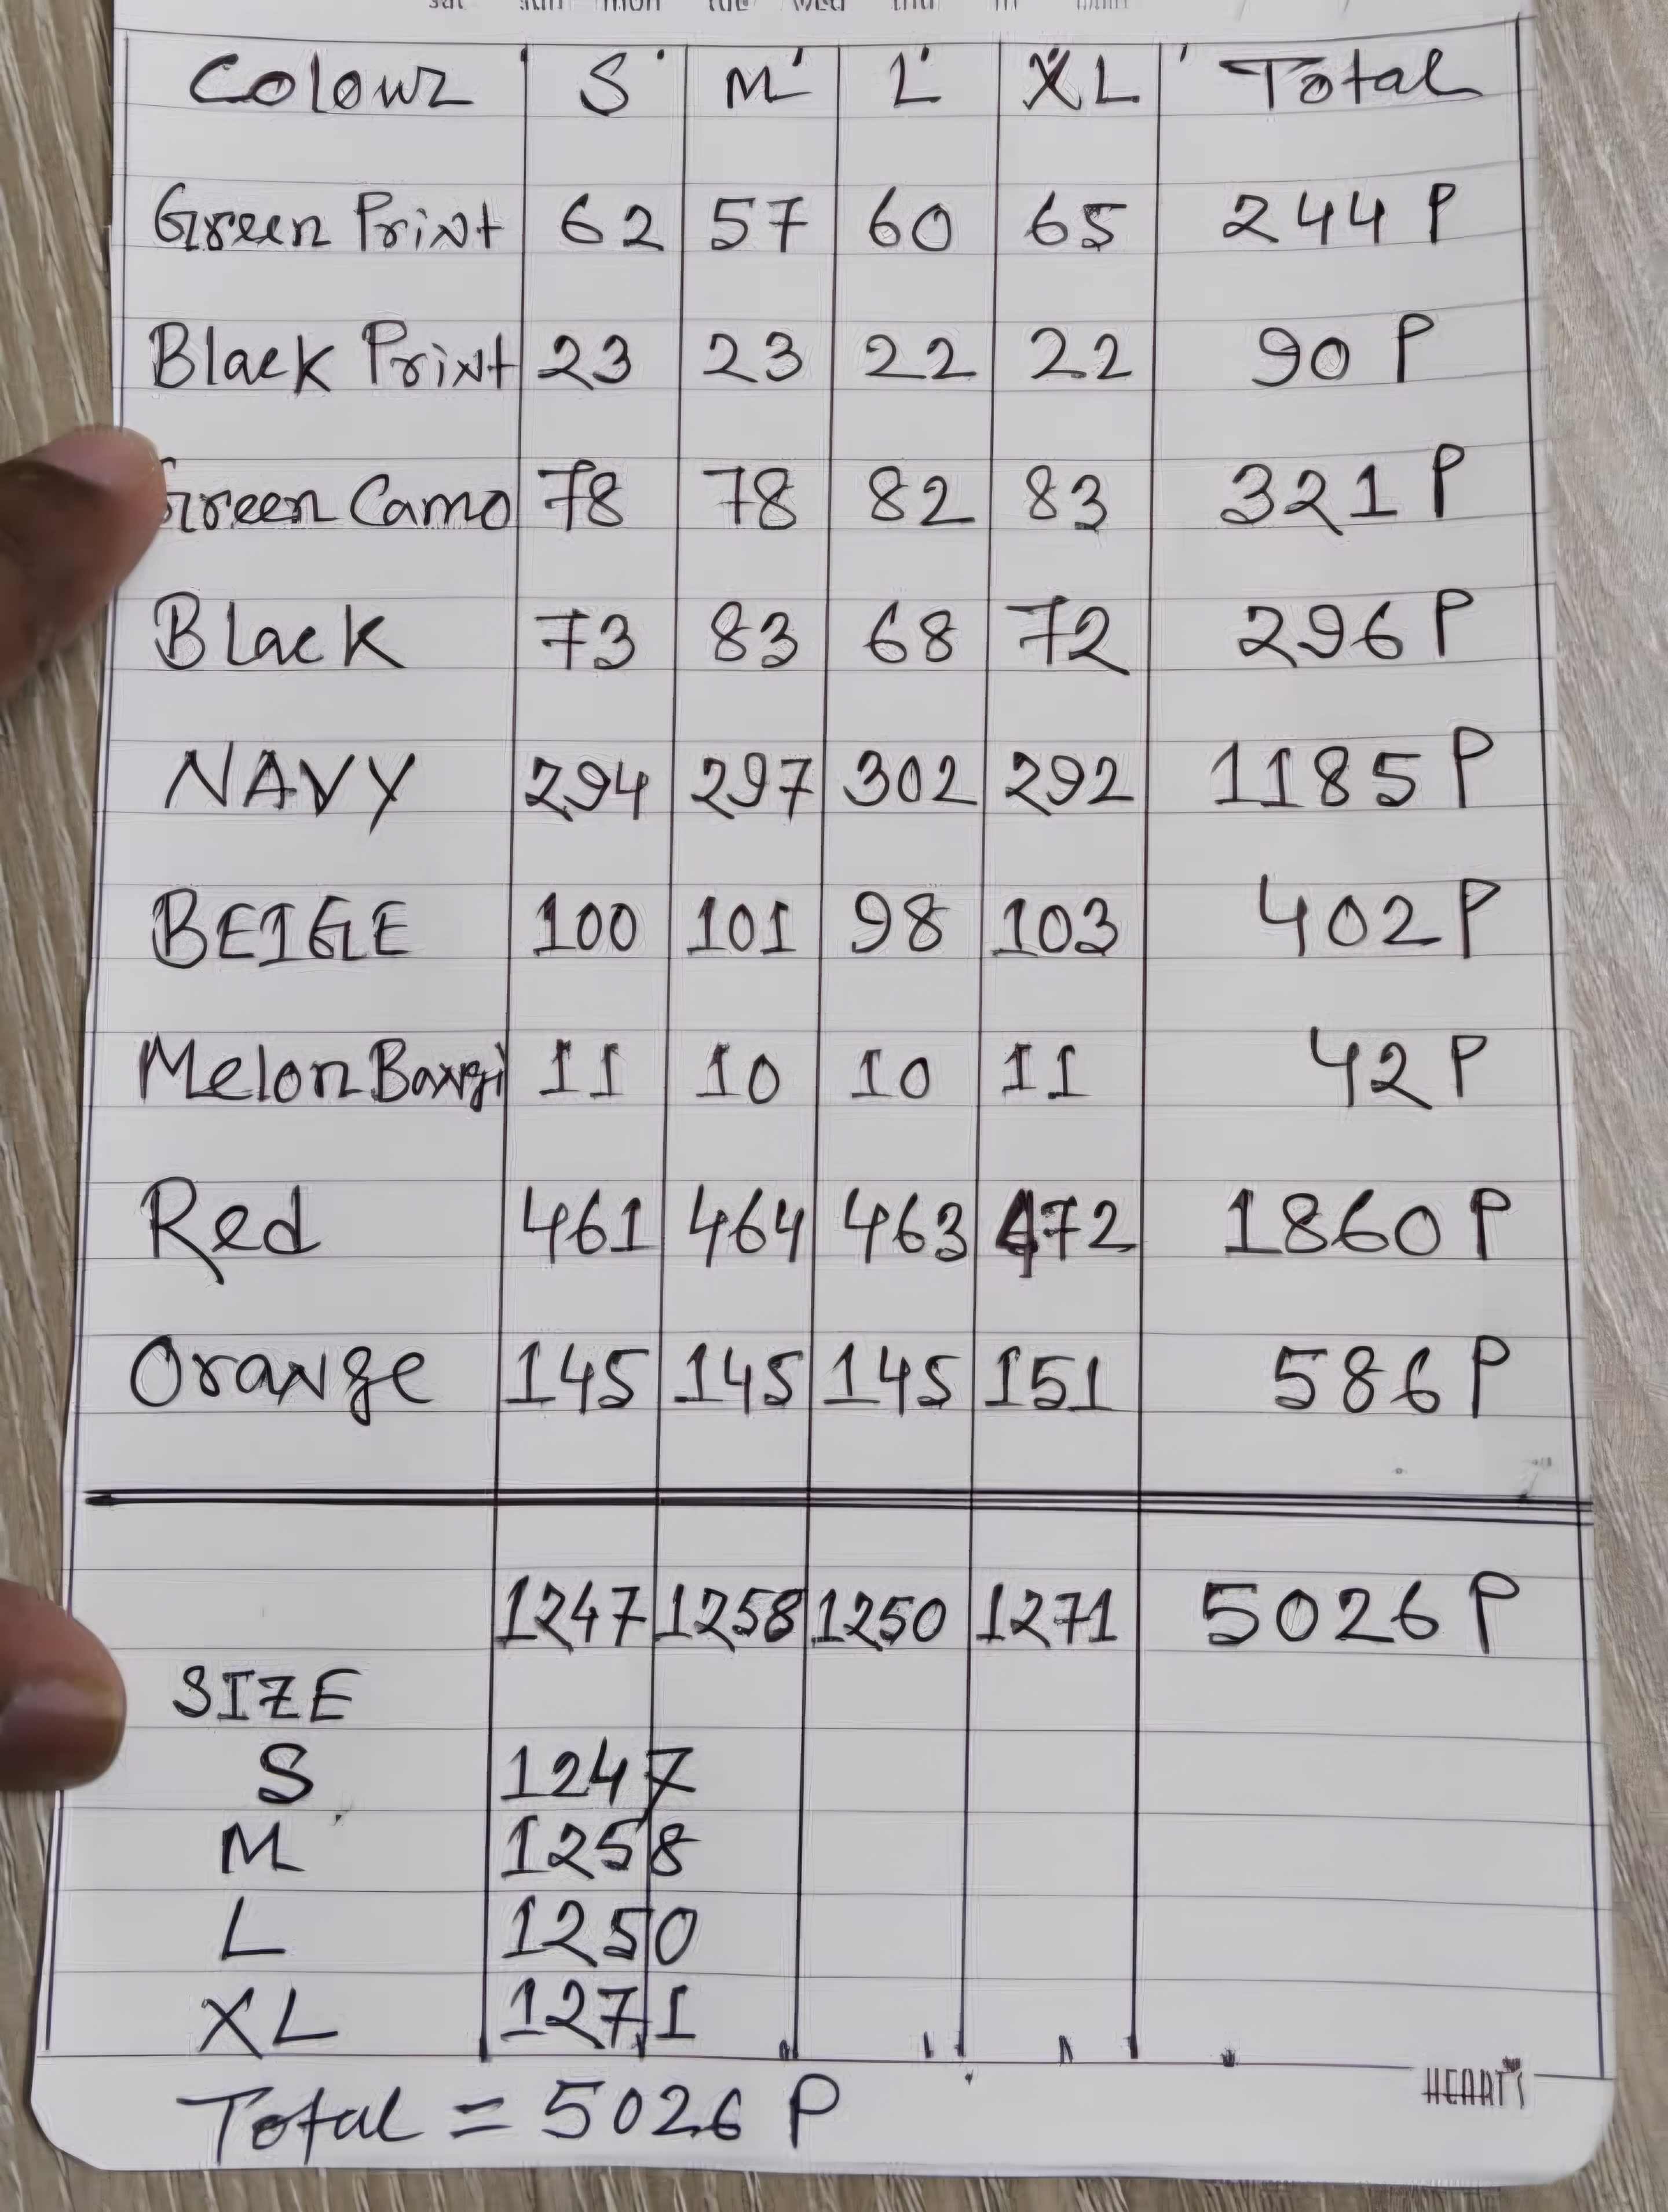 sat sun mon tue wed thu fri
Colour S M L XL Total
Green Print 62 57 60 65 244 P
Black Print 23 23 22 22 90 P
Green Camo 78 78 82 83 321 P
Black 73 83 68 72 296 P
NAVY 294 297 302 292 1185 P
BEIGE 100 101 98 103 402 P
Melon 11 10 10 11 42 P
Red 461 464 463 472 1860 P
Orange 145 145 145 151 586 P
1247 1258 1250 1271 5026 P
SIZE
S 1247
M 1258
L 1250
XL 1271
HEART'S
Total = 5026 P